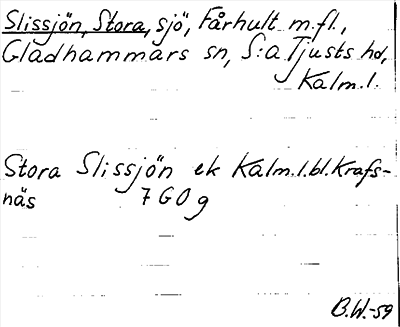 Slissjön, Stora, sjö, Fårhult m.fl.,
Gladhammars sn, S:a Tjusts hd,
Kalm.l.
Stora Slissjön ek Kalm.l.bl.Krafs-
näs 7 G O g
B.W.-59